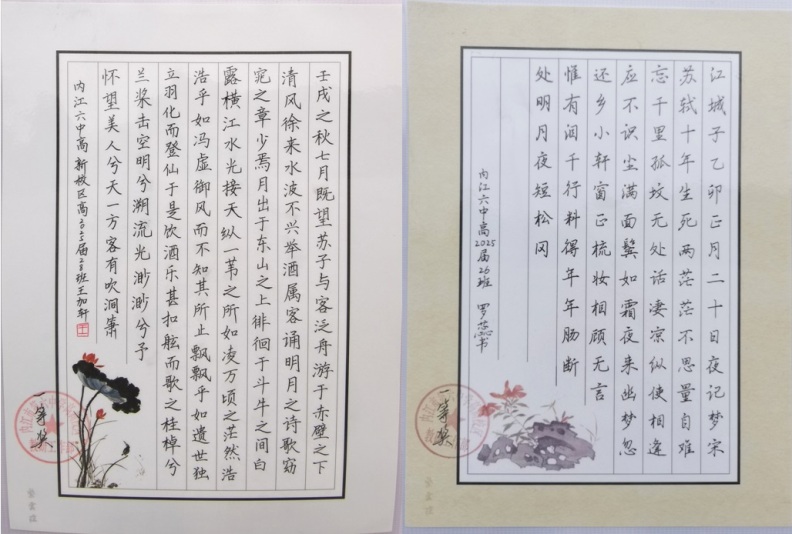 壬戌之秋七月既望苏子与客泛舟游于赤壁之下
清风徐来水波不兴举酒属客诵明月之诗歌窈
窕之章少焉月出于东山之上徘徊于斗牛之间白
露横江水光接天纵一苇之所如凌万顷之茫然浩
浩乎如冯虚御风而不知其所止飘飘乎如遗世独
立羽化而登仙于是饮酒乐甚扣舷而歌之桂棹兮
兰桨击空明兮溯流光渺渺兮予
怀望美人兮天一方客有吹洞箫
内江六中高新校区高2025届28班王加轩
一等奖
江城子乙卯正月二十日夜记梦宋
苏轼十年生死两茫茫不思量自难
忘千里孤坟无处话凄凉纵使相逢
应不识尘满面鬓如霜夜来幽梦忽
还乡小轩窗正梳妆相顾无言
惟有泪千行料得年年肠断
处明月夜短松冈
内江六中高2025届26班 罗蕊书
一等奖